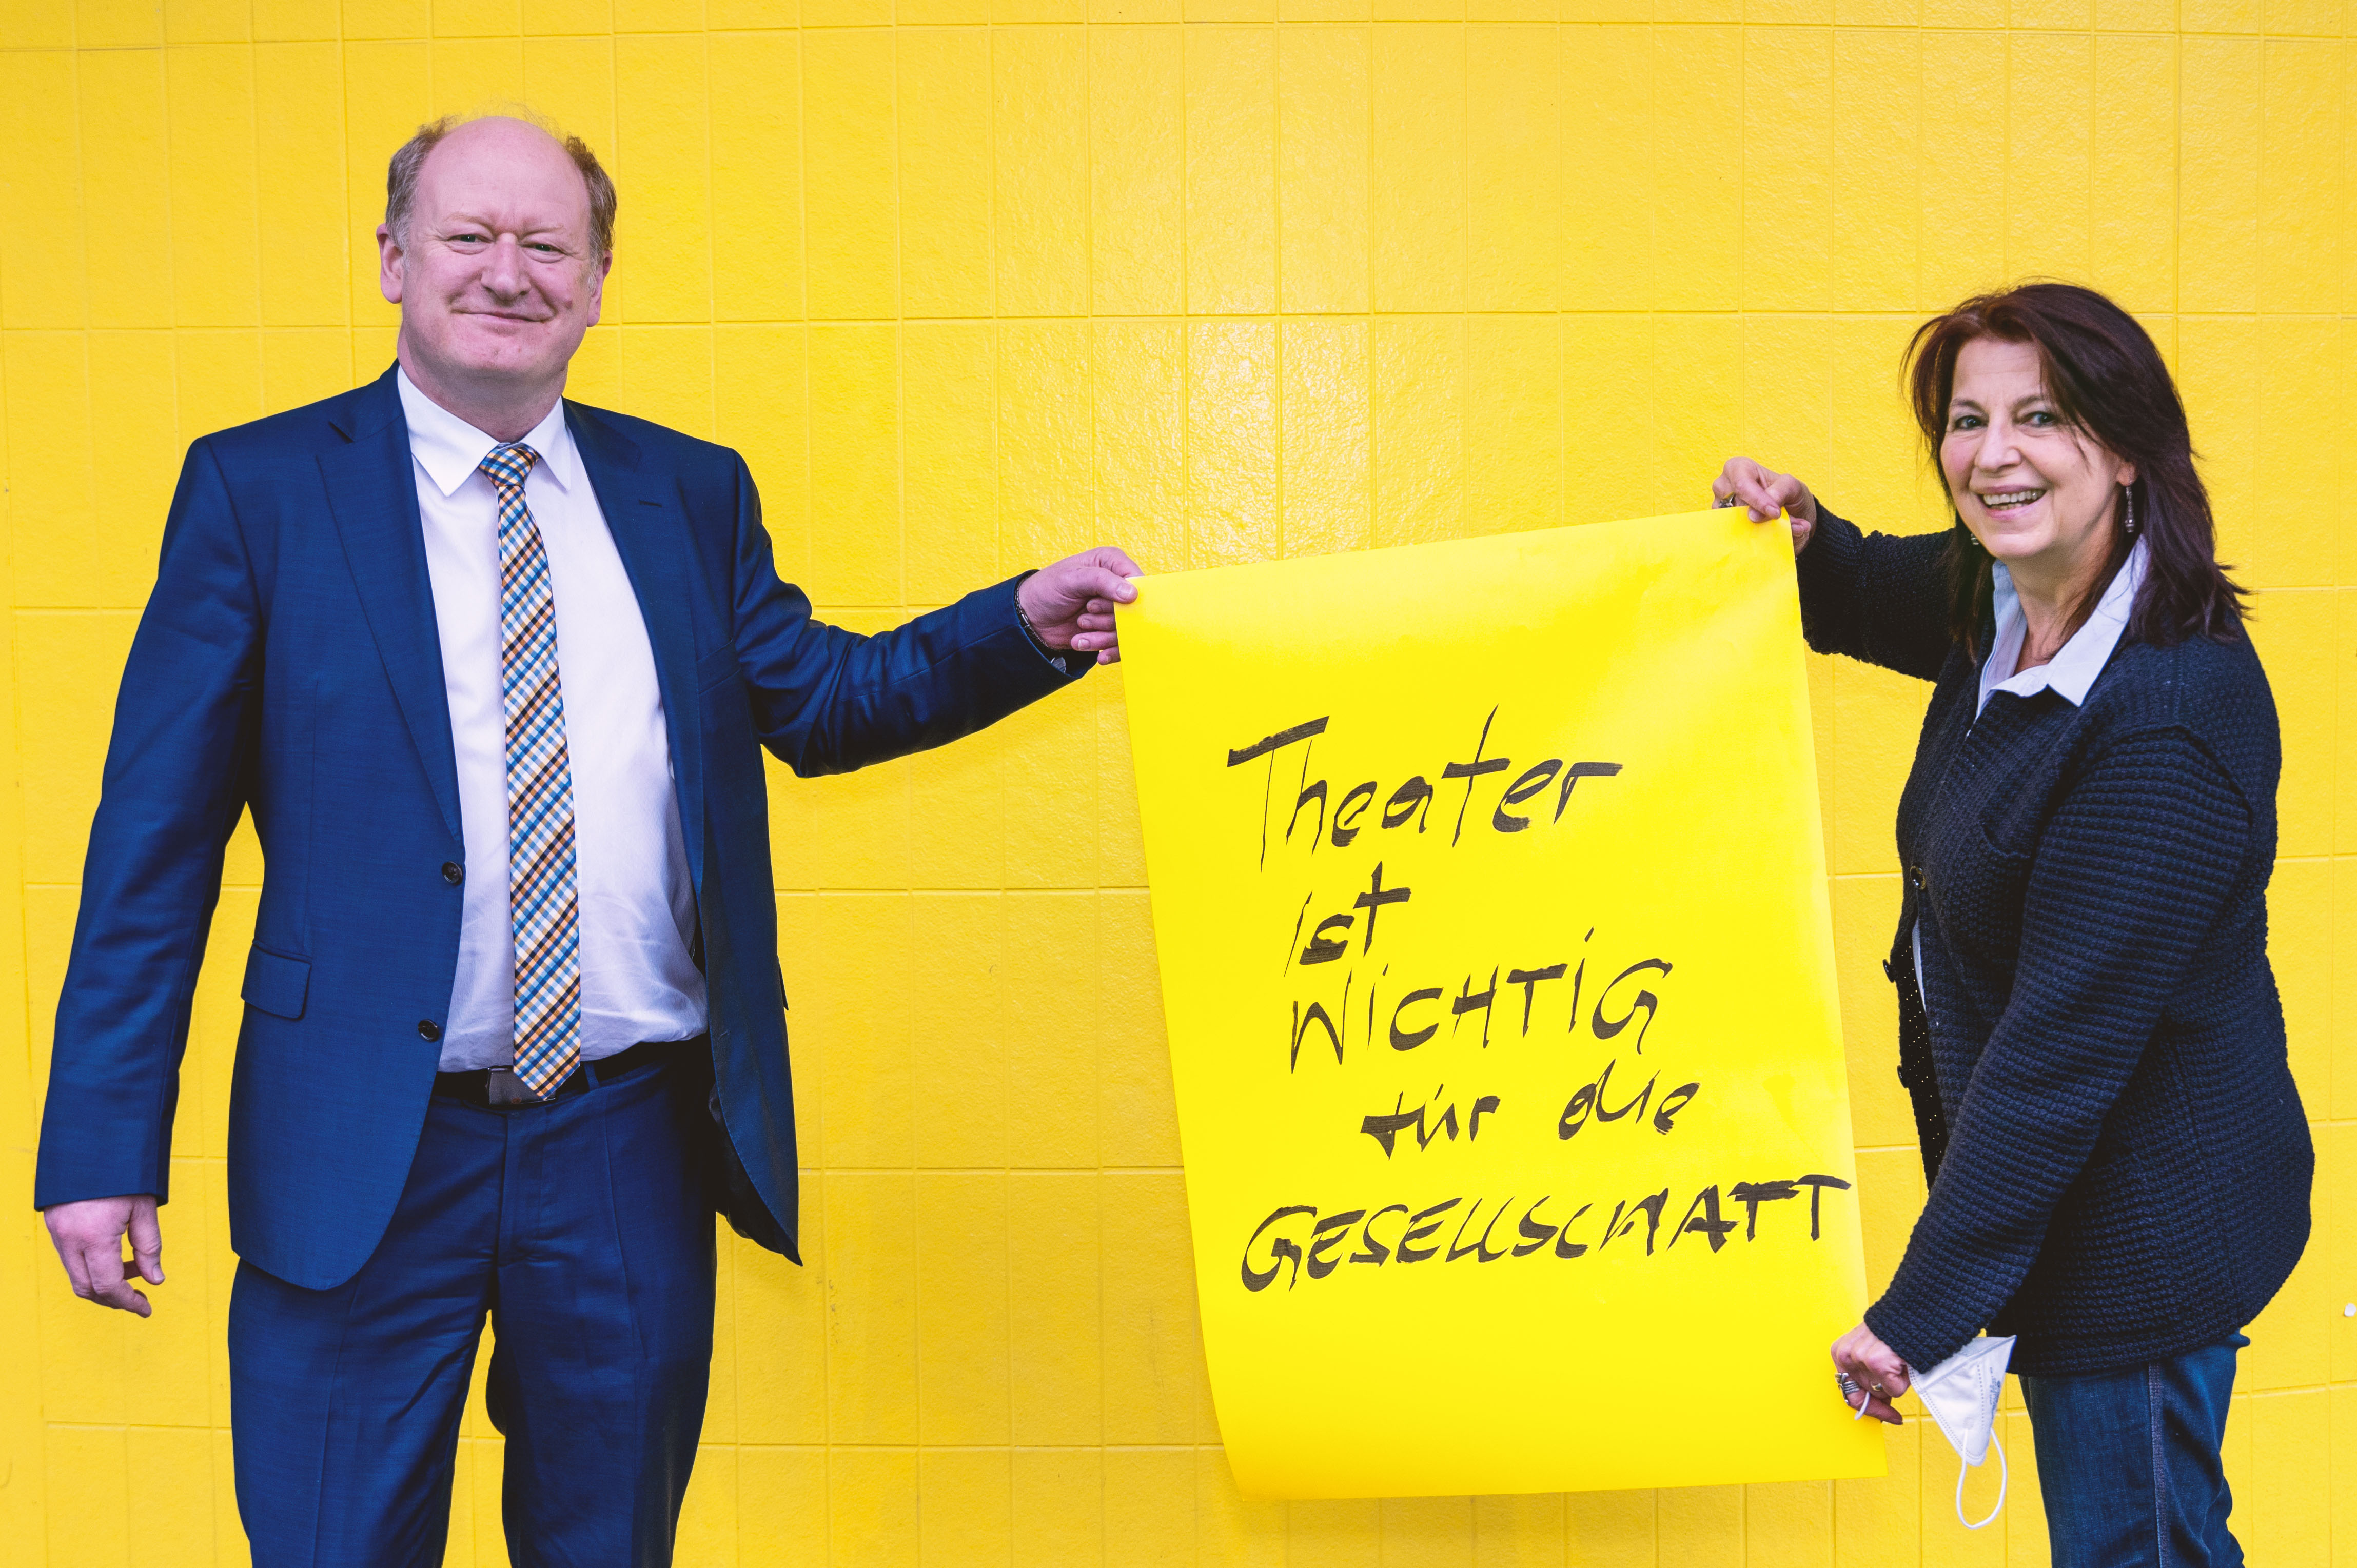 Theater
ist
WiCHTiG
für die
GESELLSCHAFT